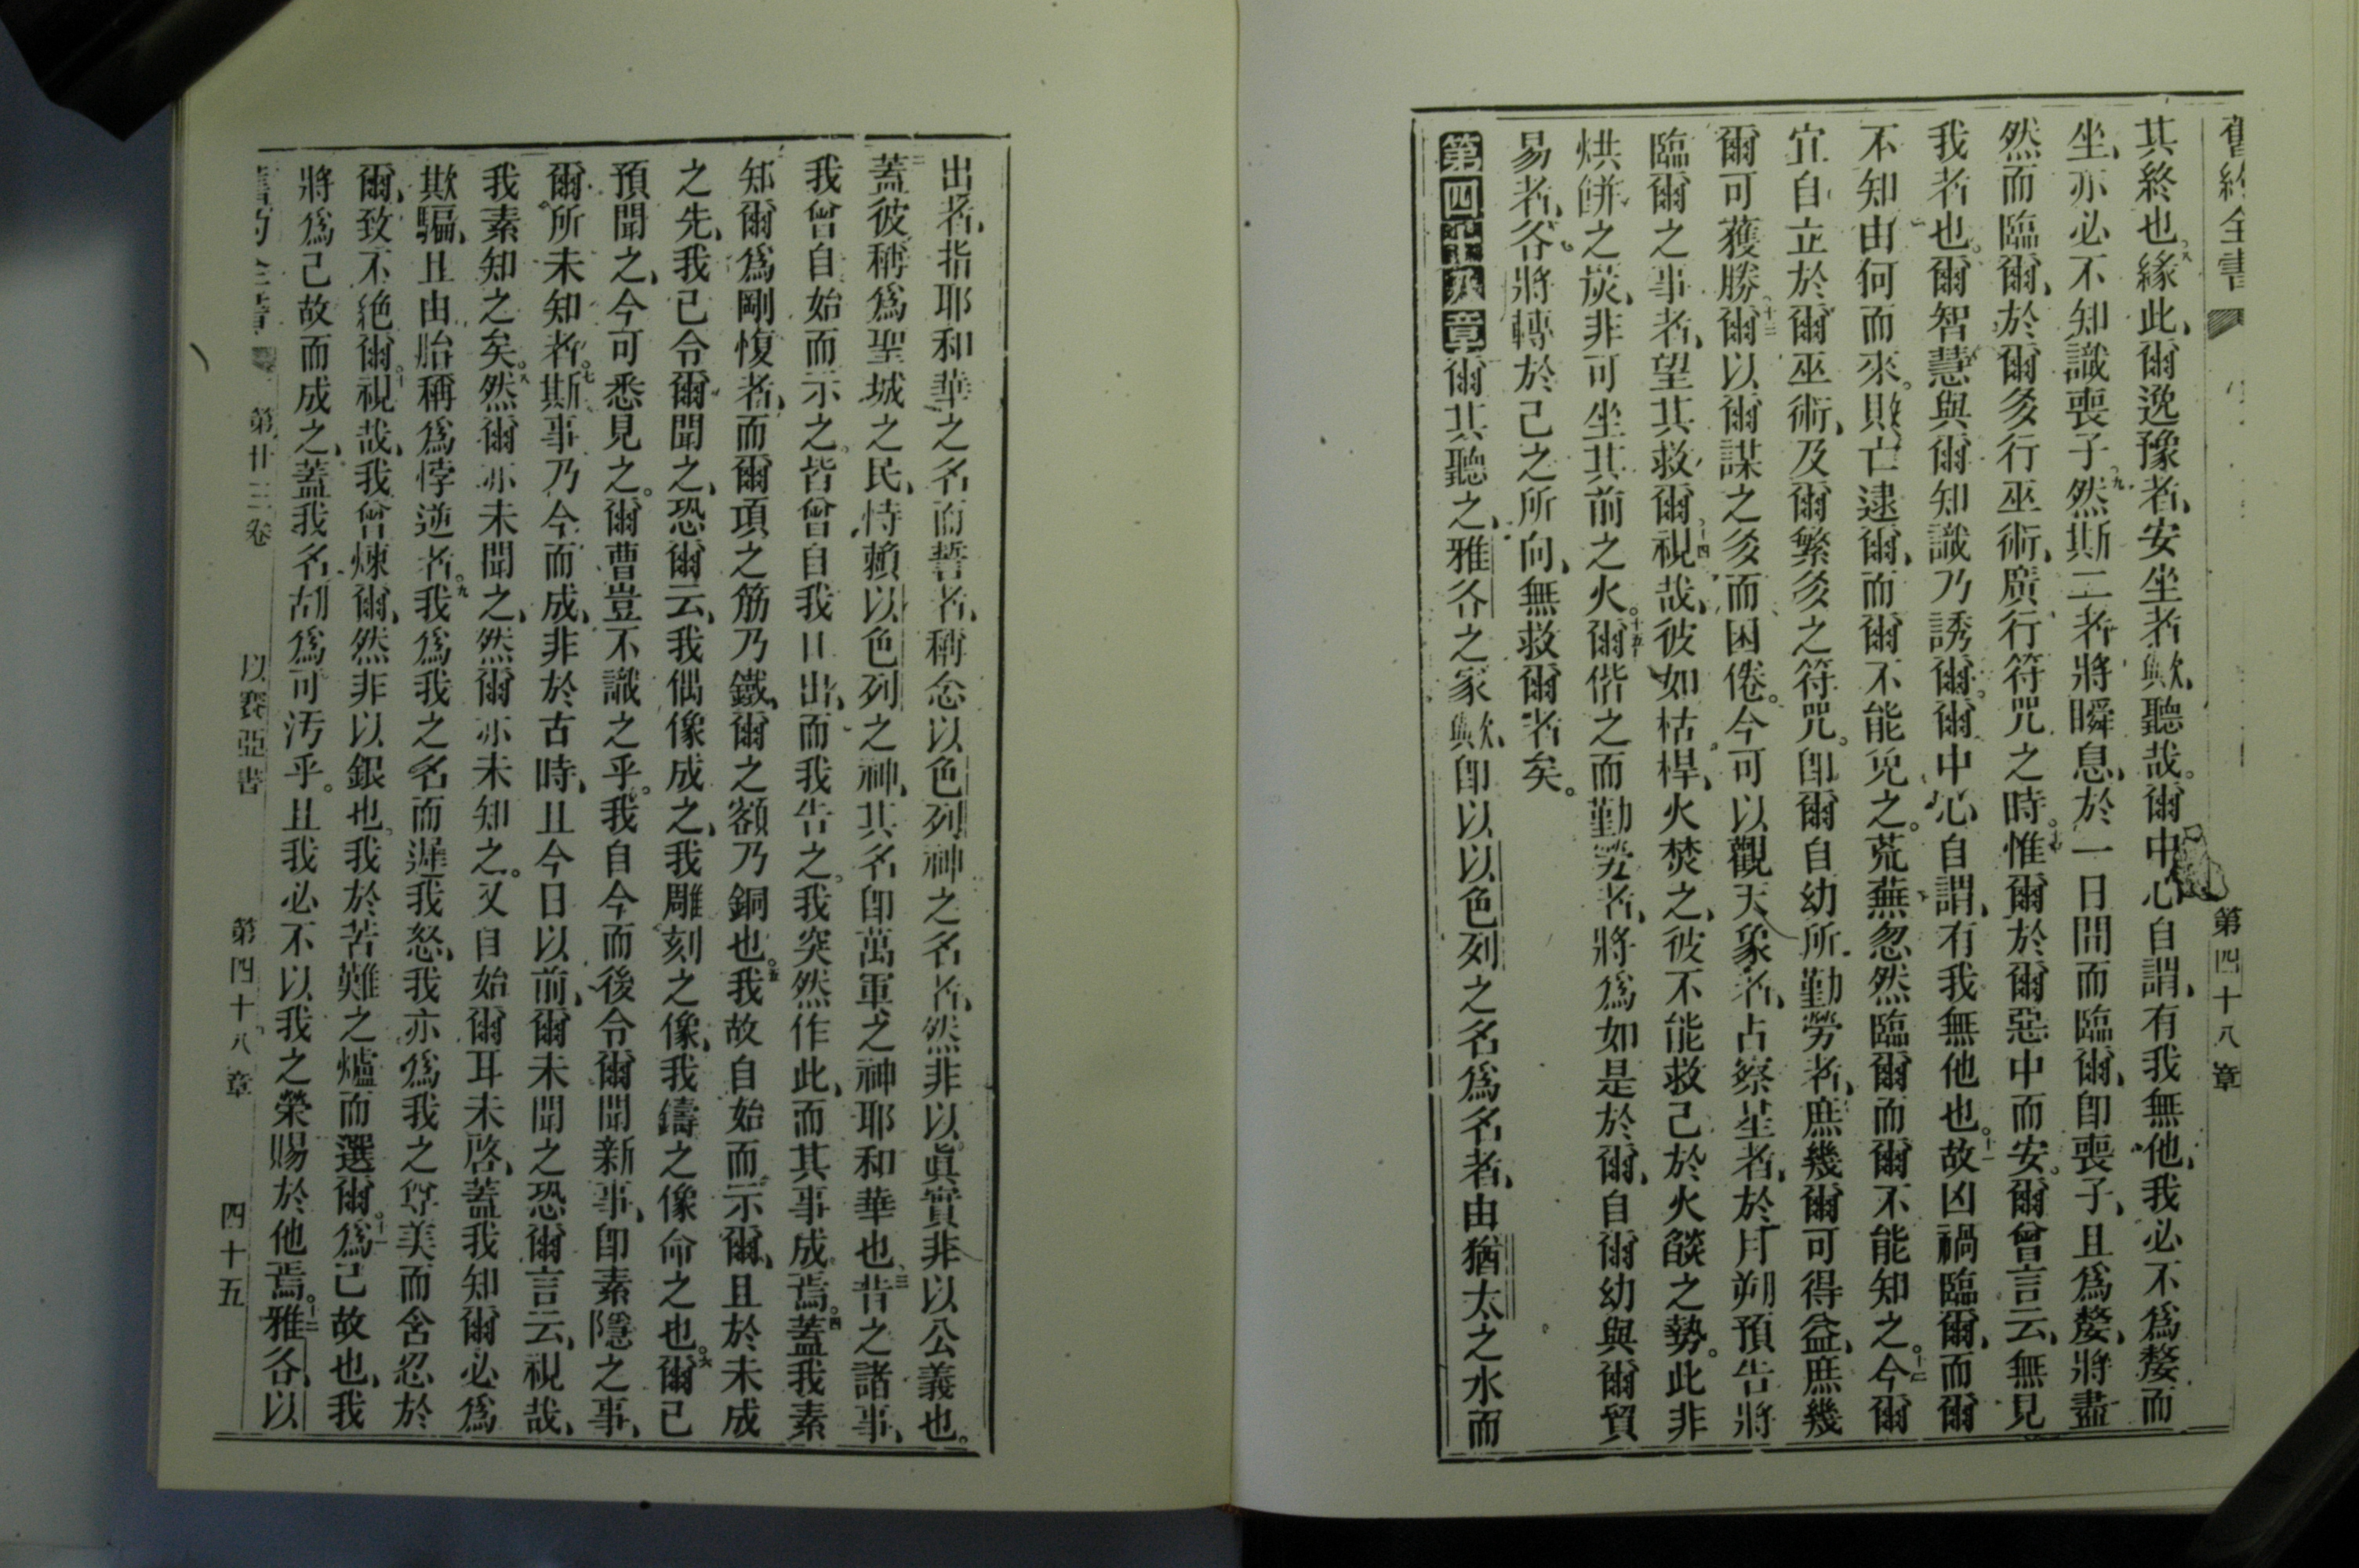 第四十八章
其終也。八緣此、爾逸豫者、安坐者歟、聽哉。爾中心自謂、有我無他、我必不爲嫠而
坐、亦必不知識喪子。九然斯二者將瞬息、於一日間而臨爾、卽喪子、且爲嫠、將盡
然而臨爾、於爾多行巫術、廣行符咒之時。十惟爾於爾惡中而安。爾曾言云、無見
我者也。爾智慧與爾知識乃誘爾。爾中心自謂、有我無他也。十一故凶禍臨爾、而爾
不知由何而來。敗亡逮爾、而爾不能免之。荒蕪忽然臨爾而爾不能知之。十二今爾
宜自立於爾巫術、及爾繁多之符咒。卽爾自幼所勤勞者、庶幾爾可得益、庶幾
爾可獲勝。十三爾以爾謀之多而困倦。今可以觀天象者、占察星者、於月朔預告將
臨爾之事者、望其救爾。十四視哉、彼如枯稈、火焚之、彼不能救己於火燄之勢。此非
烘餅之炭、非可坐其前之火。十五爾偕之而勤勞者、將爲如是於爾、自爾幼與爾貿
易者、各將轉於己之所向、無救爾者矣。
第四十八章 爾其聽之、雅各之家歟、卽以以色列之名爲名者、由猶太之水而
出者、指耶和華之名而誓者、稱念以色列神之名者、然非以眞實非以公義也。
二蓋彼稱爲聖城之民、恃賴以色列之神、其名卽萬軍之神耶和華也、三昔之諸事、
我曾自始而示之。皆曾自我口出、而我告之。我突然作此、而其事成焉。四蓋我素
知爾爲剛愎者、而爾項之筋乃鐵、爾之額乃銅也。五我故自始而示爾、且於未成
之先、我已令爾聞之、恐爾云、我偶像成之、我雕刻之像、我鑄之像命之也。六爾已
預聞之、今可悉見之。爾曹豈不識之乎。我自今而後令爾聞新事、卽素隱之事、
爾所未知者。七斯事乃今而成、非於古時、且今日以前、爾未聞之恐爾言云、視哉、
我素知之矣。八然爾亦未聞之、然爾亦未知之。又自始爾耳未啓、蓋我知爾必爲
欺騙、且由胎稱爲悖逆者。九我爲我之名而遲我怒、我亦爲我之尊美而含忍於
爾、致不絕爾。十視哉、我曾煉爾、然非以銀也。我於苦難之爐而選爾。十一爲己故也、我
將爲己故而成之、蓋我名胡爲可汚乎。且我必不以我之榮賜於他焉。十二雅各、以
第廿三卷 以賽亞書 第四十八章 四十五